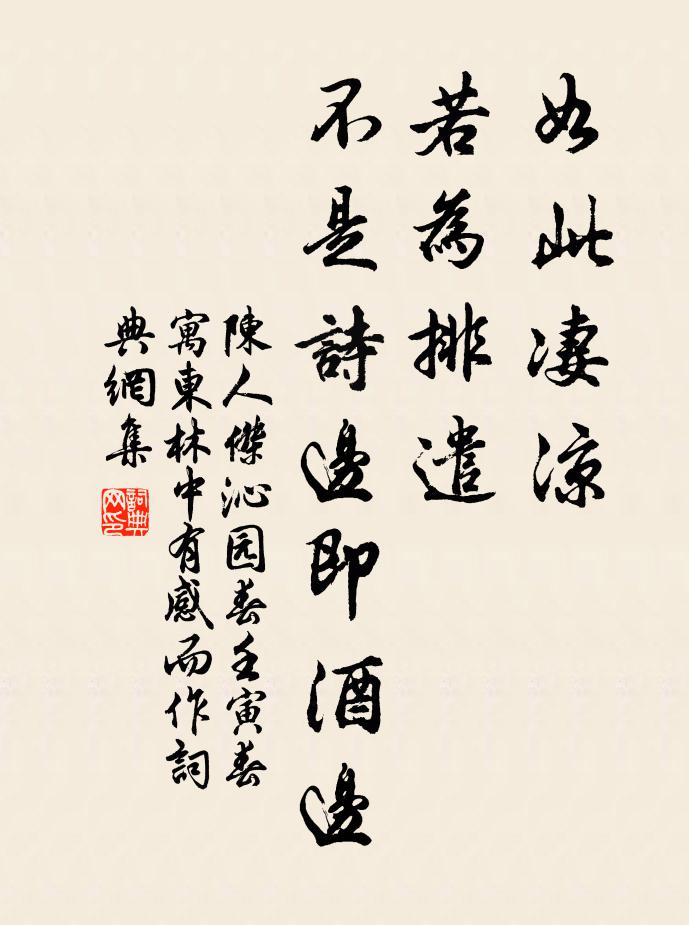 如此凄凉
若為排遣
不是詩邊即酒邊
陳人傑沁园春壬寅春
寓東林中有感而作詞
典網集
詞典网印